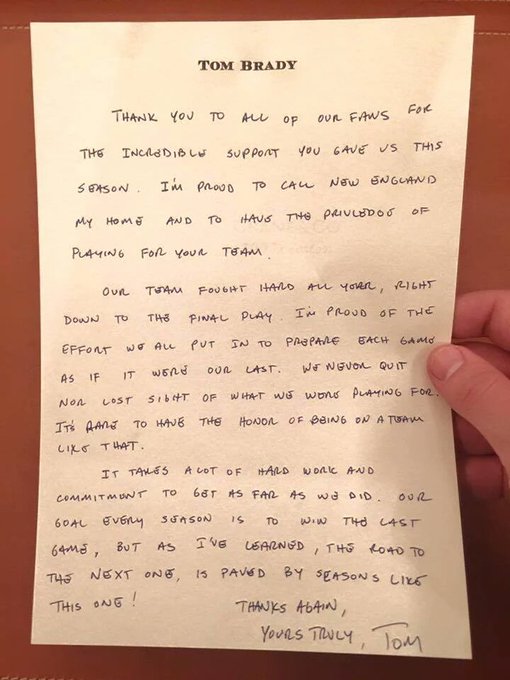 TOM BRADY
THANK YOU TO ALL OF OUR FANS FOR
THE INCREDIBLE SUPPORT YOU GAVE US THIS
SEASON. I'M PROUD TO CALL NEW ENGLAND
MY HOME AND TO HAVE THE PRIVLEDGE OF
PLAYING FOR YOUR TEAM.
OUR TEAM FOUGHT HARD ALL YEAR, RIGHT
DOWN TO THE FINAL PLAY. I'M PROUD OF THE
EFFORT WE ALL PUT IN TO PREPARE EACH GAME
AS IF IT WERE OUR LAST. WE NEVER QUIT
NOR LOST SIGHT OF WHAT WE WERE PLAYING FOR.
IT'S RARE TO HAVE THE HONOR OF BEING ON A TEAM
LIKE THAT.
IT TAKES A LOT OF HARD WORK AND
COMMITMENT TO GET AS FAR AS WE DID. OUR
GOAL EVERY SEASON IS TO WIN THE LAST
GAME, BUT AS I'VE LEARNED, THE ROAD TO
THE NEXT ONE, IS PAVED BY SEASONS LIKE
THIS ONE!
THANKS AGAIN,
YOURS TRULY, TOM